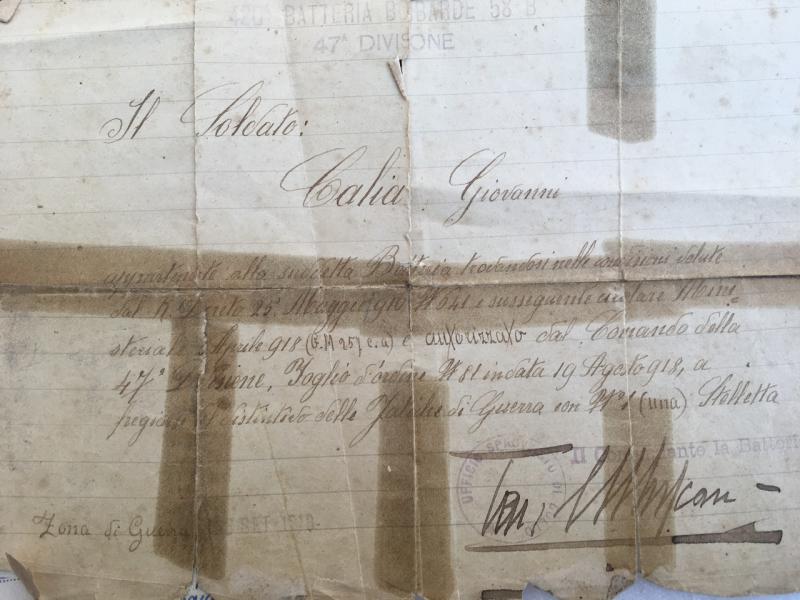 420ª BATTERIA BOMBARDE 58 B
47ª DIVISIONE
Il Soldato:
Calia Giovanni
appartenente alla suddetta Batteria trovandosi nelle condizioni volute
dal R. Decreto 25 Maggio 916 Nº 641 e susseguente circolare Mini=
steriale Aprile 918 (G.M 257 c.a) è autorizzato dal Comando della
47ª Divisione, Foglio d'ordine Nº 81 in data 19 Agosto 918, a
fregiarsi del distintivo delle Fatiche di Guerra con Nº 1 (una) Stelletta
Il Comandante la Batteria
UFFICIO
Zona di Guerra SET. 1918